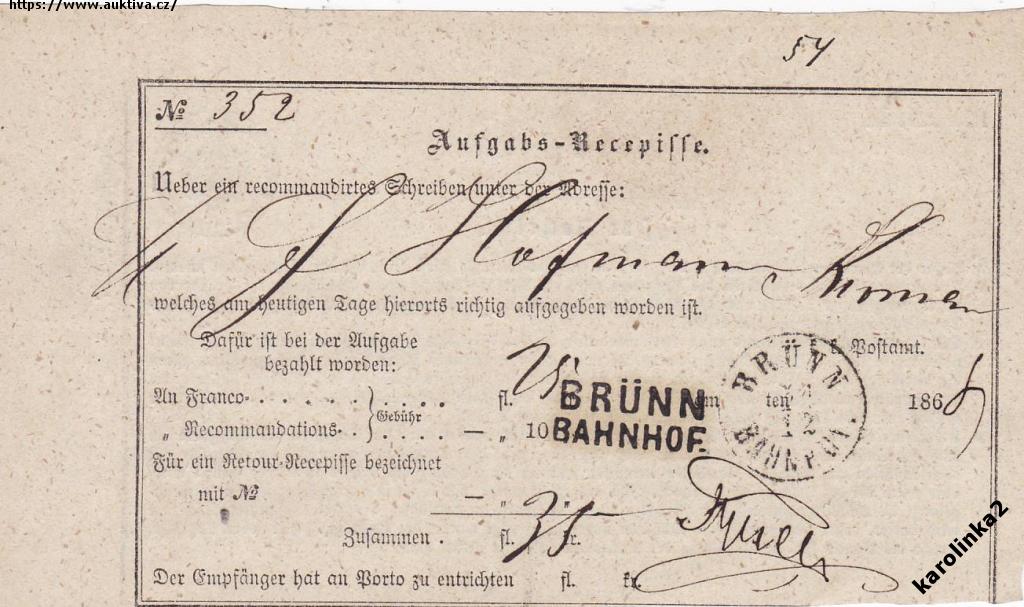 https://www.auktiva.cz/
54
№ 352
Aufgabs-Recepisse.
Ueber ein recommandirtes Schreiben unter der Adresse:
J Hofmann
welches am heutigen Tage hierorts richtig aufgegeben worden ist.
Dafür ist bei der Aufgabe
bezahlt worden:
k. k. Postamt.
An Franco- . . . . . . . . . fl. 25
„ Recommandations- . . . . . . — „ 10
Gebühr
BRÜNN
BAHNHOF.
am ten 1868
BRÜNN
12
BAHNHOF.
Für ein Retour-Recepisse bezeichnet
mit № — „
Zusammen . fl. 35 kr.
Der Empfänger hat an Porto zu entrichten fl. kr.
karolinka2